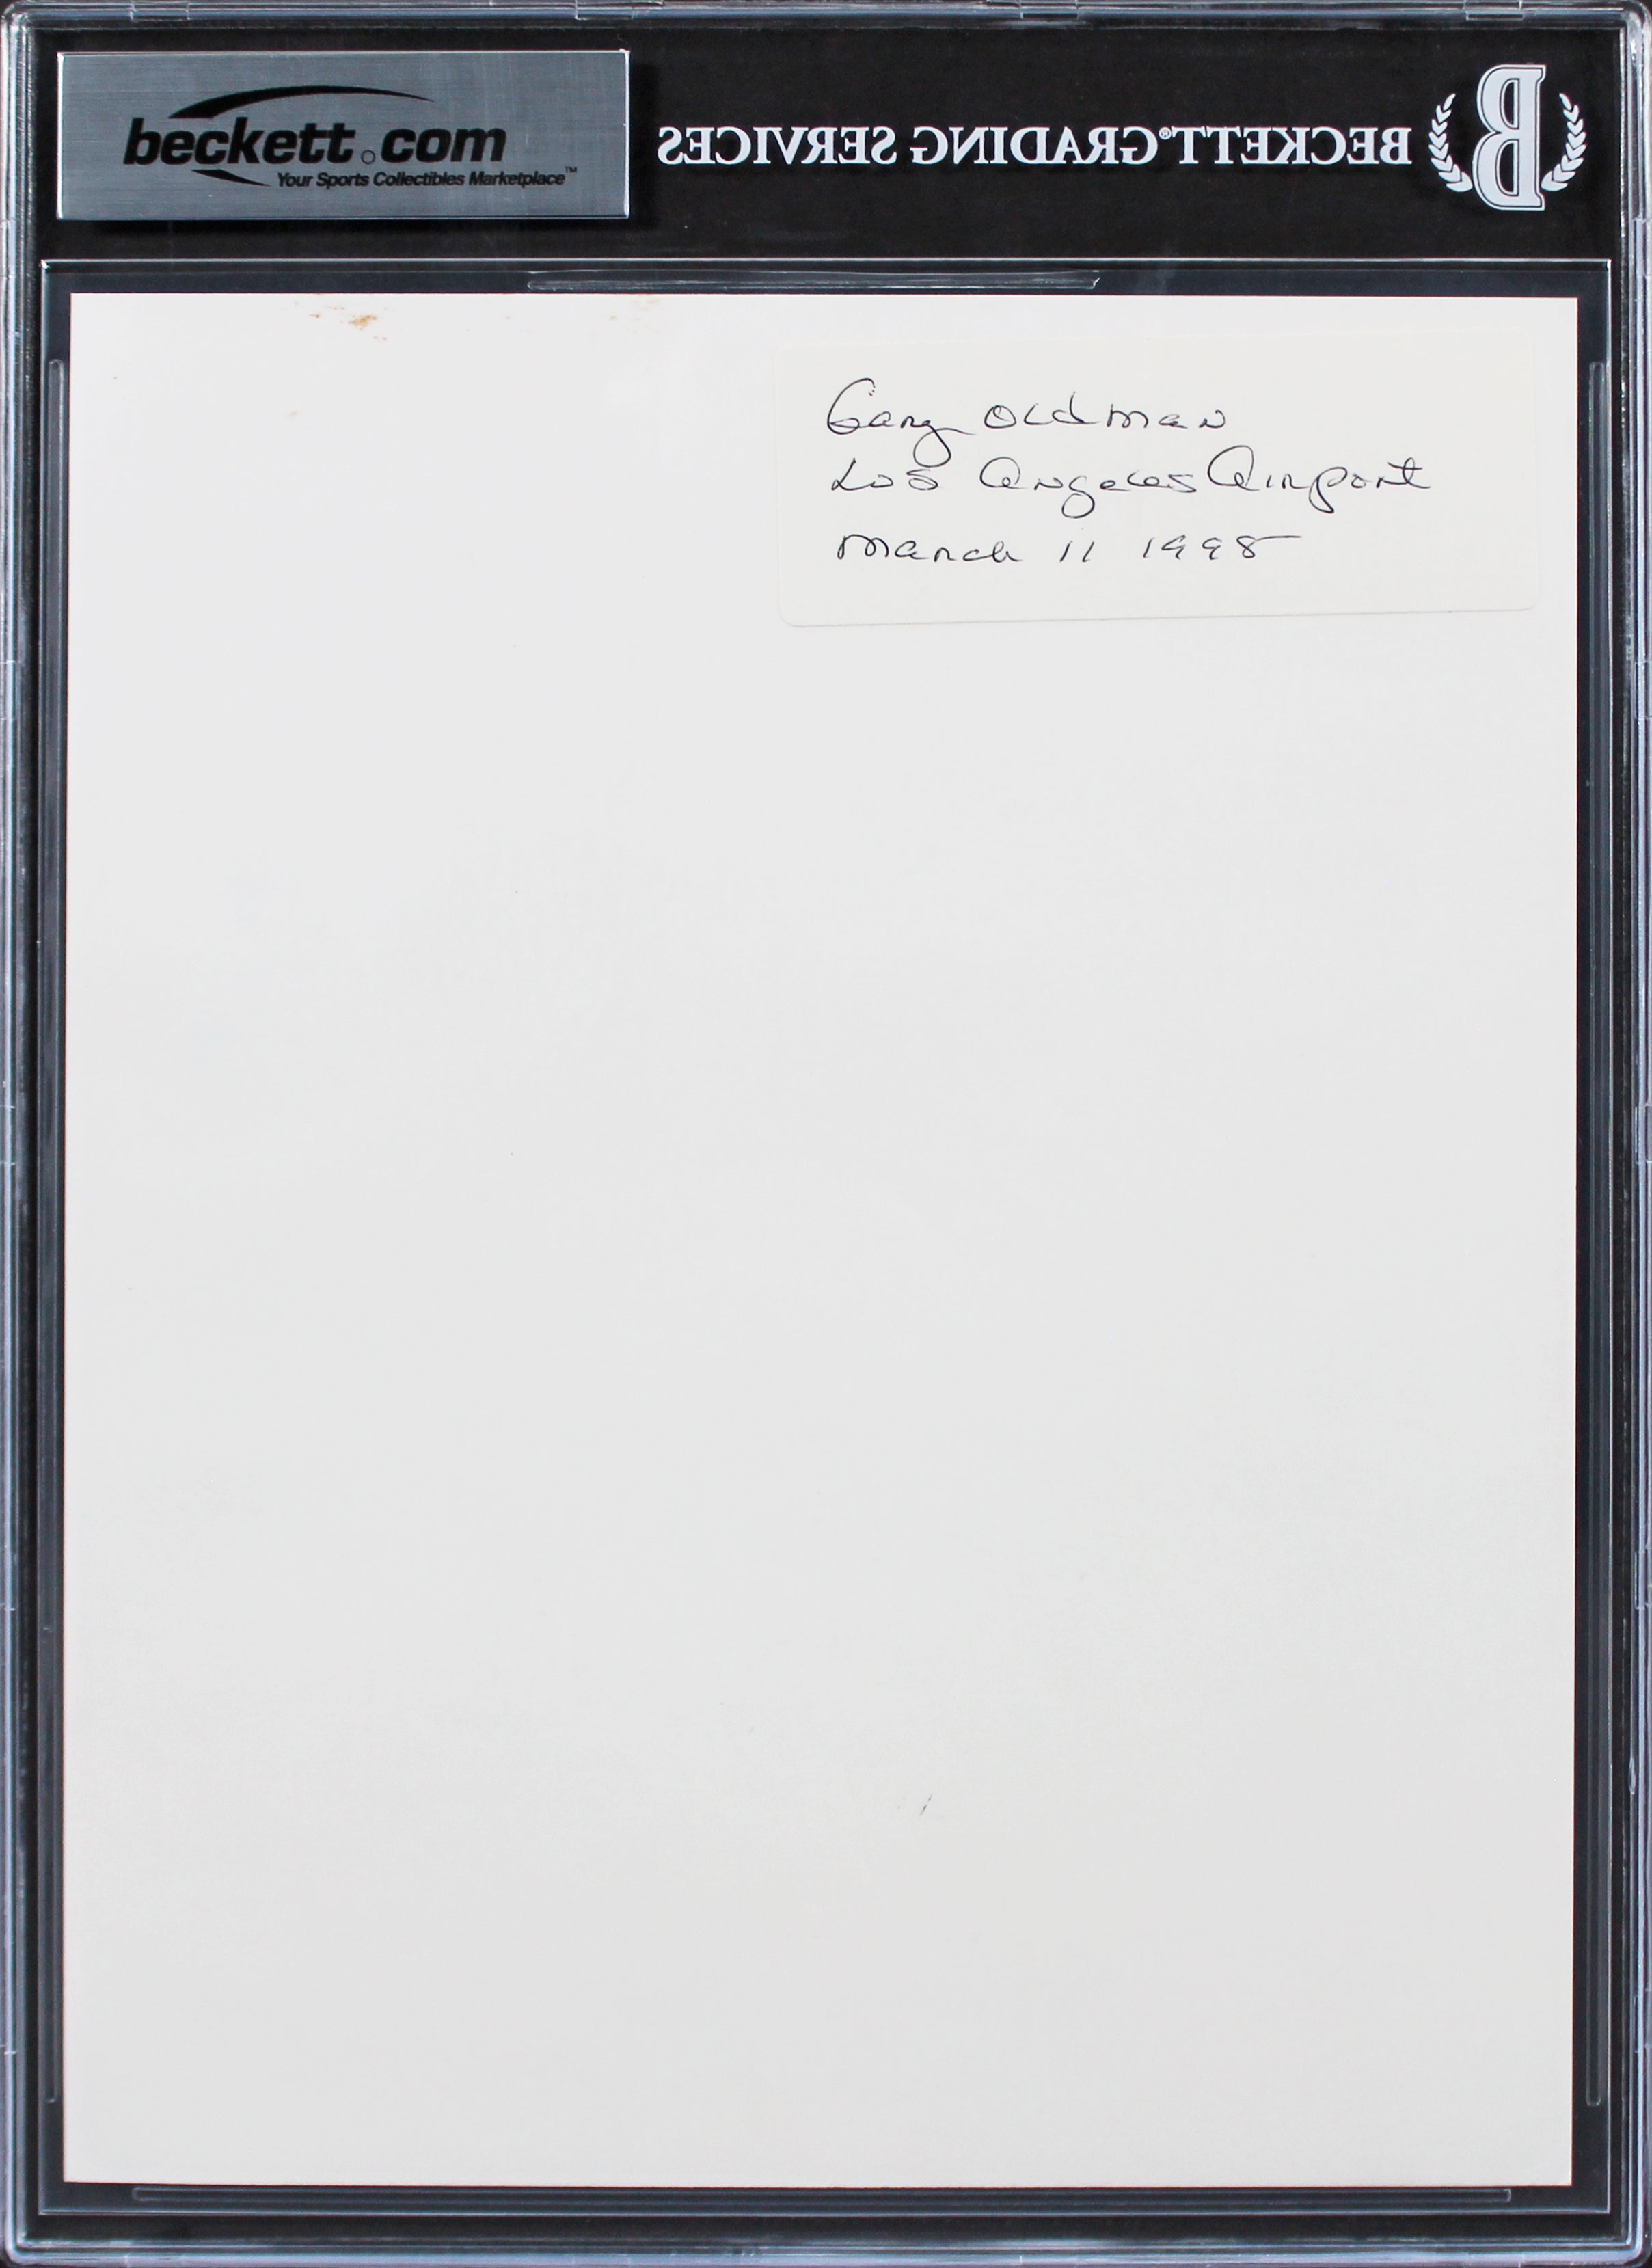 beckett.com
Your Sports Collectibles Marketplace™
BECKETT® GRADING SERVICES
B
Gary Oldman
Los Angeles Airport
March 11 1998